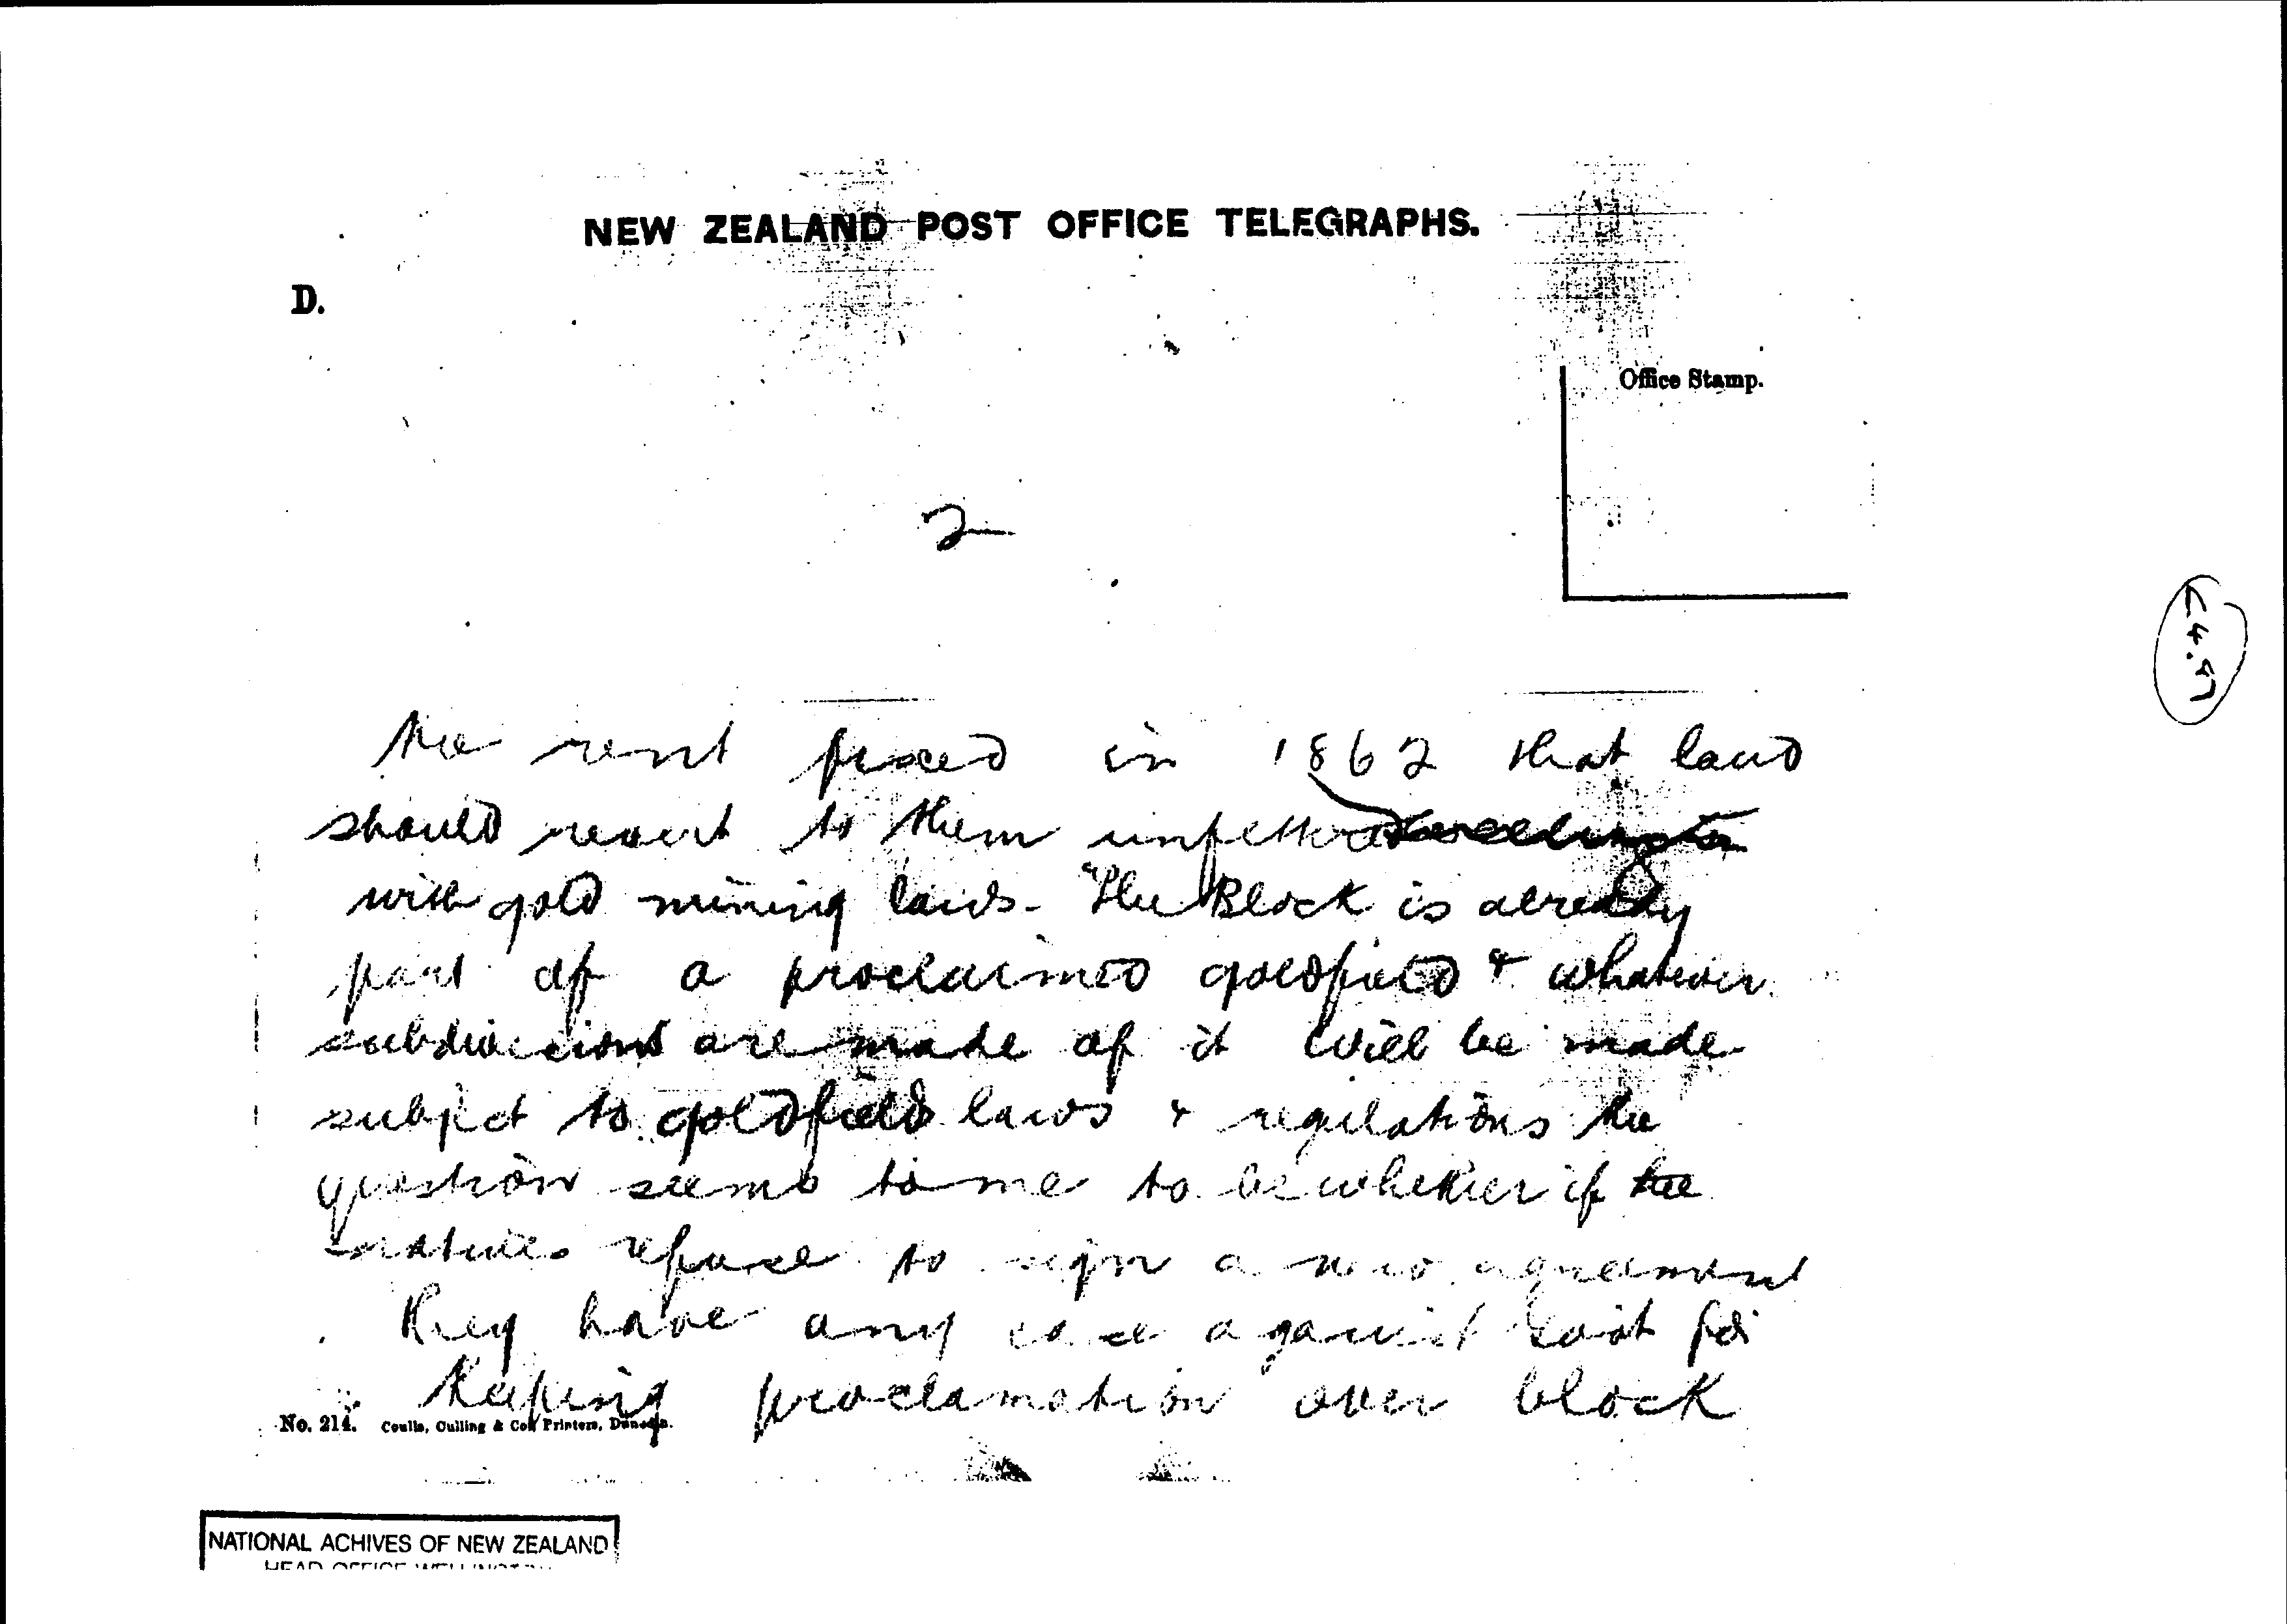 NEW ZEALAND POST OFFICE TELEGRAPHS.
D.
Office Stamp.
2
the rent fixed in 1862 that land
should revert to them unfettered
with gold mining laws. The Block is already
part of a proclaimed goldfield & whatever
subdivisions are made of it will be made
subject to goldfield laws & regulations the
question seems to me to be whether if the
natives refuse to sign a new agreement
they have any case against for
keeping proclamation over block
No. 214. Coulls, Culling & Co., Printers, Dunedin.
NATIONAL ACHIVES OF NEW ZEALAND
HEAD OFFICE WELLINGTON